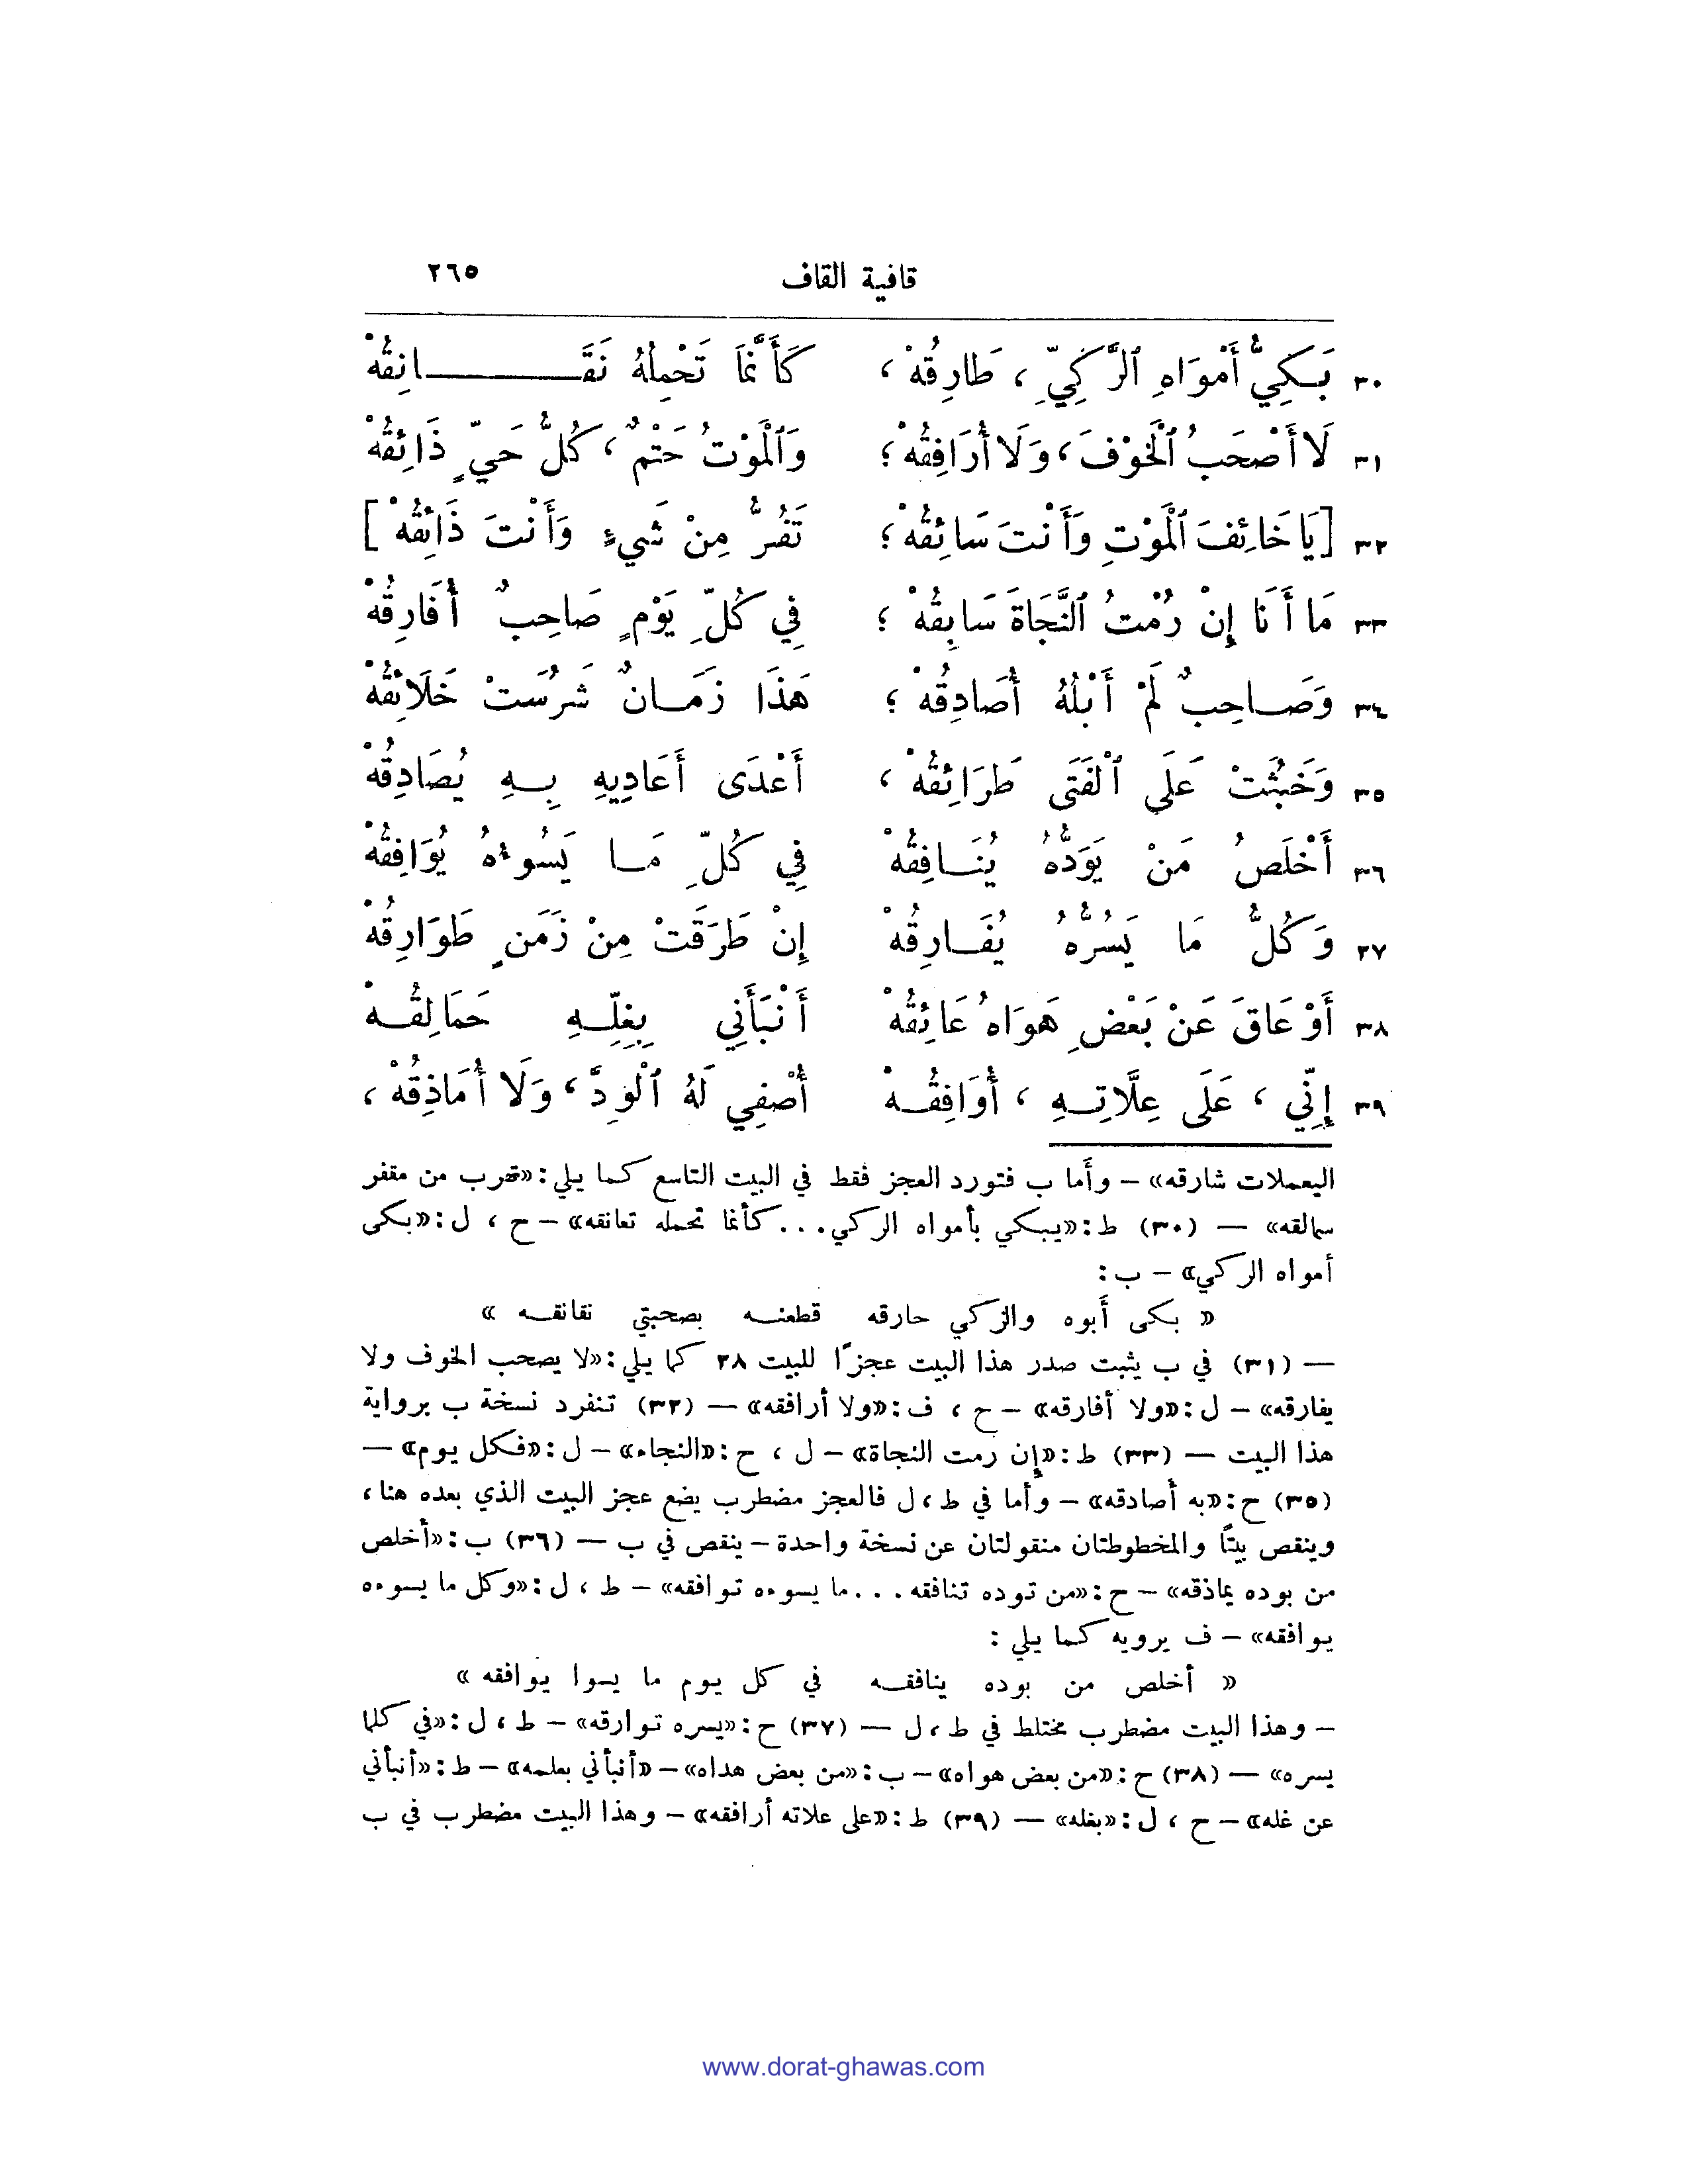 قافية القاف ٢٦٥
٣٠ بَـكِيُّ أَمْوَاهِ ٱلرَّكِيِّ ، طَارِقُهْ ، كَأَنَّمَا تَحْمِلُهُ نَقَـــــانِقُهْ
٣١ لَا أَصْحَبُ ٱلْخَوْفَ ، وَلَا أُرَافِقُهْ ؛ وَٱلْمَوْتُ حَتْمٌ ، كُلُّ حَيٍّ ذَائِقُهْ
٣٢ [يَا خَائِفَ ٱلْمَوْتِ وَأَنْتَ سَائِقُهْ ؛ تَفُرُّ مِنْ شَيءٍ وَأَنْتَ ذَائِقُهْ]
٣٣ مَا أَنَا إِنْ رُمْتُ ٱلنَّجَاةَ سَابِقُهْ ؛ فِي كُلِّ يَوْمٍ صَاحِبٌ أُفَارِقُهْ
٣٤ وَصَـاحِبٌ لَمْ أَبْلُهُ أُصَادِقُهْ ؛ هَذَا زَمَـانٌ شَرُسَتْ خَلَائِقُهْ
٣٥ وَخَبُثَتْ عَلَى ٱلْفَتَى طَرَائِقُهْ ، أَعْدَى أَعَادِيهِ بِـهِ يُصَادِقُهْ
٣٦ أَخْلَصُ مَنْ يَوَدُّهُ يُنَـافِقُهْ فِي كُلِّ مَـا يَسُوءهُ يُوَافِقُهْ
٣٧ وَكُلُّ مَا يَسُرُّهُ يُفَـارِقُهْ إِنْ طَرَقَتْ مِنْ زَمَنٍ طَوَارِقُهْ
٣٨ أَوْ عَاقَ عَنْ بَعْضِ هَوَاهُ عَائِقُهْ أَنْبَأَنِي بِغِلِّـهِ حَمَالِقُـهْ
٣٩ إِنِّي ، عَلَى عِلَّاتِـهِ ، أُوَافِقُـهْ أُصْفِي لَهُ ٱلْوِدَّ ، وَلَا أُمَاذِقُهْ ،
اليعملات شارقه» – وأَما ب فتورد العجز فقط في البيت التاسع كما يلي : «تهرب من مقفر
سمالقه» — (٣٠) ط : «يبكي بأمواه الركي . . . كأنما تحمله تعانقه» – ح ، ل : «بكى
أمواه الركي» – ب :
« بكى أَبوه والزكي حارقه قطعنـه بصحبتي نقانقـه »
— (٣١) في ب يثبت صدر هذا البيت عجزًا للبيت ٢٨ كما يلي : «لا يصحب الخوف ولا
يفارقه» – ل : «ولا أفارقه» – ح ، ف : «ولا أرافقه» — (٣٢) تنفرد نسخة ب برواية
هذا البيت — (٣٣) ط : «إن رمت النجاة» – ل ، ح : «النجاء» – ل : «فكل يوم» —
(٣٥) ح : «به أصادقه» – وأما في ط ، ل فالعجز مضطرب يضع عجز البيت الذي بعده هنا ،
وينقص بيتًا والمخطوطتان منقولتان عن نسخة واحدة – ينقص في ب — (٣٦) ب : «أخلص
من بوده يماذقه» – ح : «من توده تنافقه . . . ما يسوءه توافقه» – ط ، ل : «وكل ما يسوءه
يوافقه» – ف يرويه كما يلي :
« أخلص من بوده ينافقـه في كل يوم ما يسوا يوافقه »
– وهذا البيت مضطرب مختلط في ط ، ل — (٣٧) ح : «يسره توارقه» – ط ، ل : «في كلما
يسره» — (٣٨) ح : «من بعض هواه» – ب : «من بعض هداه» – «أنبأني بعلمه» – ط : «أنبأني
عن غله» – ح ، ل : «بغله» — (٣٩) ط : «على علاته أرافقه» – وهذا البيت مضطرب في ب
www.dorat-ghawas.com